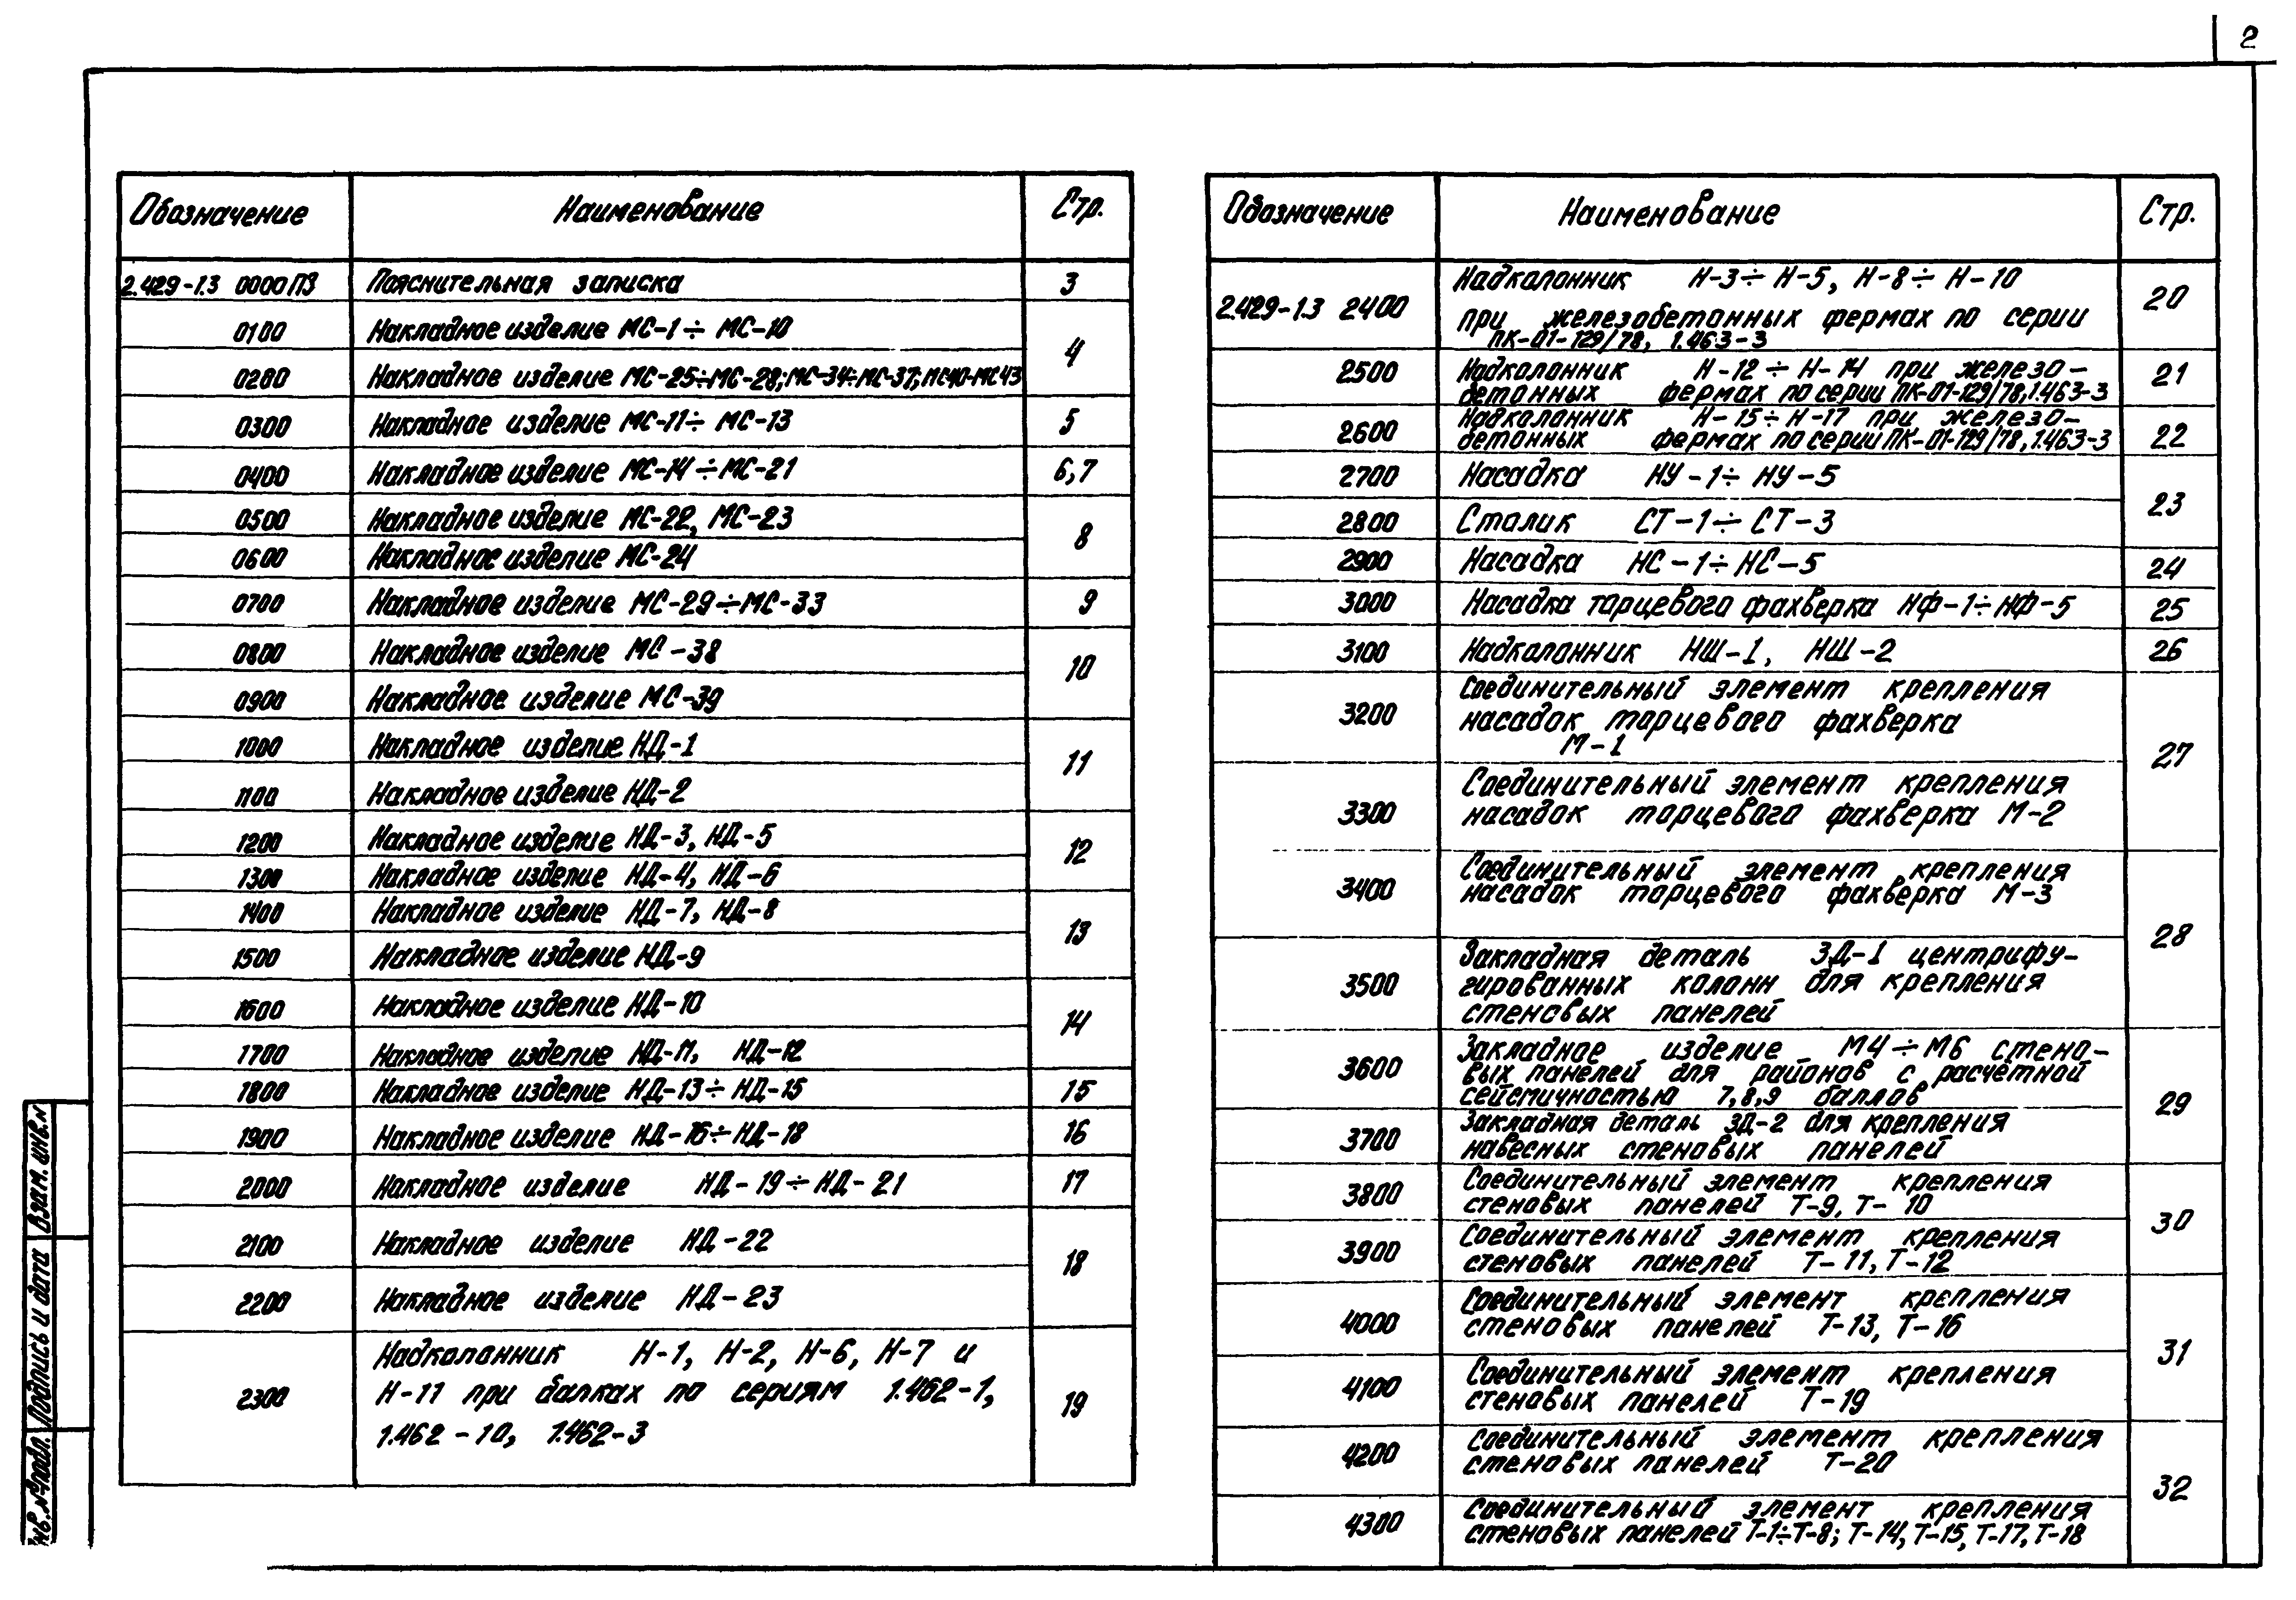 2
Обозначение Наименование Стр.
2.429-1.3 0000 ПЗ Пояснительная записка 3
0100 Накладное изделие МС-1÷МС-10
4
0280 Накладное изделие МС-25÷МС-28; МС-34÷МС-37; МС40-МС43
0300 Накладное изделие МС-11÷МС-13 5
0400 Накладное изделие МС-14÷МС-21 6,7
0500 Накладное изделие МС-22, МС-23
8
0600 Накладное изделие МС-24
0700 Накладное изделие МС-29÷МС-33 9
0800 Накладное изделие МС-38
10
0900 Накладное изделие МС-39
1000 Накладное изделие НД-1
11
1100 Накладное изделие НД-2
1200 Накладное изделие НД-3, НД-5
12
1300 Накладное изделие НД-4, НД-6
1400 Накладное изделие НД-7, НД-8
13
1500 Накладное изделие НД-9
1600 Накладное изделие НД-10
14
1700 Накладное изделие НД-11, НД-12
1800 Накладное изделие НД-13÷НД-15 15
1900 Накладное изделие НД-16÷НД-18 16
2000 Накладное изделие НД-19÷НД-21 17
2100 Накладное изделие НД-22
18
2200 Накладное изделие НД-23
Надколонник Н-1, Н-2, Н-6, Н-7 и
2300 Н-11 при балках по сериям 1.462-1, 19
1.462-10, 1.462-3
Обозначение Наименование Стр.
Надколонник Н-3÷Н-5, Н-8÷Н-10
2.429-1.3 2400 20
при железобетонных фермах по серии
ПК-01-129/78, 1.463-3
2500 Надколонник Н-12÷Н-14 при железо- 21
бетонных фермах по серии ПК-01-129/78, 1.463-3
Надколонник Н-15÷Н-17 при железо-
2600 бетонных фермах по серии ПК-01-129/78, 1.463-3 22
2700 Насадка НУ-1÷НУ-5
23
2800 Столик СТ-1÷СТ-3
2900 Насадка НС-1÷НС-5 24
3000 Насадка торцевого фахверка НФ-1÷НФ-5 25
3100 Надколонник НШ-1, НШ-2 26
Соединительный элемент крепления
3200 насадок торцевого фахверка
М-1
27
Соединительный элемент крепления
3300 насадок торцевого фахверка М-2
Соединительный элемент крепления
3400 насадок торцевого фахверка М-3
28
Закладная деталь ЗД-1 центрифу-
3500 гированных колонн для крепления
стеновых панелей
Закладное изделие М4÷М6 стено-
3600 вых панелей для районов с расчётной
сейсмичностью 7,8,9 баллов
29
Закладная деталь ЗД-2 для крепления
3700 навесных стеновых панелей
Соединительный элемент крепления
3800 стеновых панелей Т-9, Т-10
30
Соединительный элемент крепления
3900 стеновых панелей Т-11, Т-12
Соединительный элемент крепления
4000 стеновых панелей Т-13, Т-16
31
Соединительный элемент крепления
4100 стеновых панелей Т-19
Соединительный элемент крепления
4200 стеновых панелей Т-20
32
Соединительный элемент крепления
4300 стеновых панелей Т-1÷Т-8; Т-14, Т-15, Т-17, Т-18
Взам. инв.№
Подпись и дата
Инв.№подл.